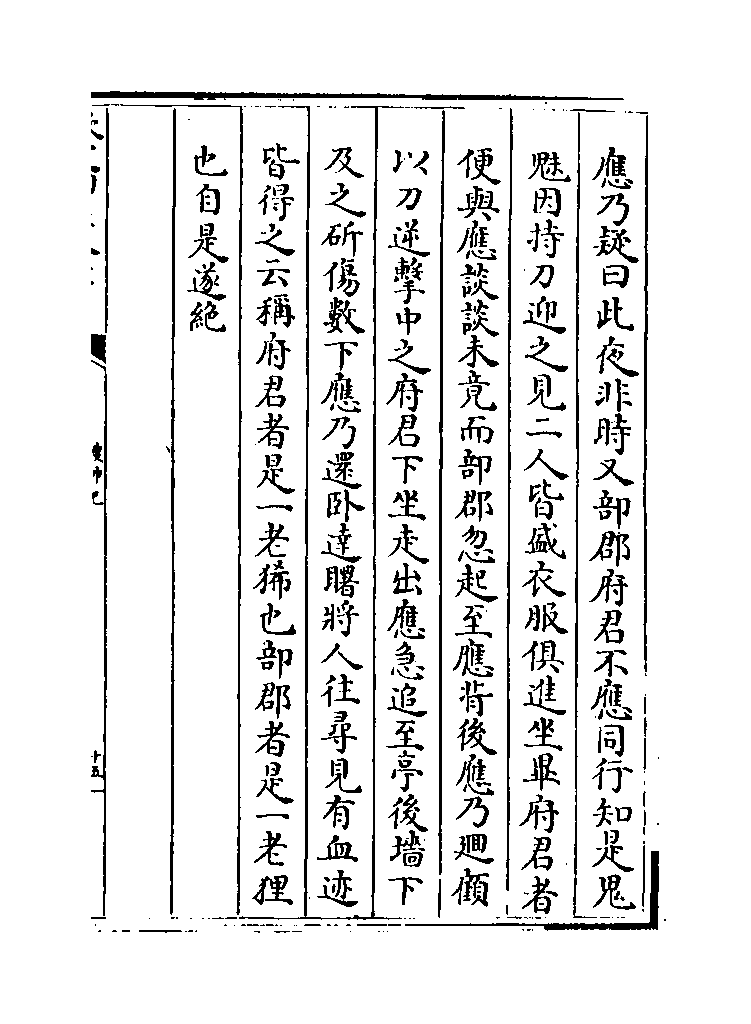 應乃疑曰此夜非時又部郡府君不應同行知是鬼
魅因持刀迎之見二人皆盛衣服俱進坐畢府君者
便與應談談未竟而部郡忽起至應背後應乃迴顧
以刀逆擊中之府君下坐走出應急追至亭後墻下
及之斫傷數下應乃還卧達曙將人往尋見有血迹
皆得之云稱府君者是一老狶也部郡者是一老狸
也自是遂絶
十五